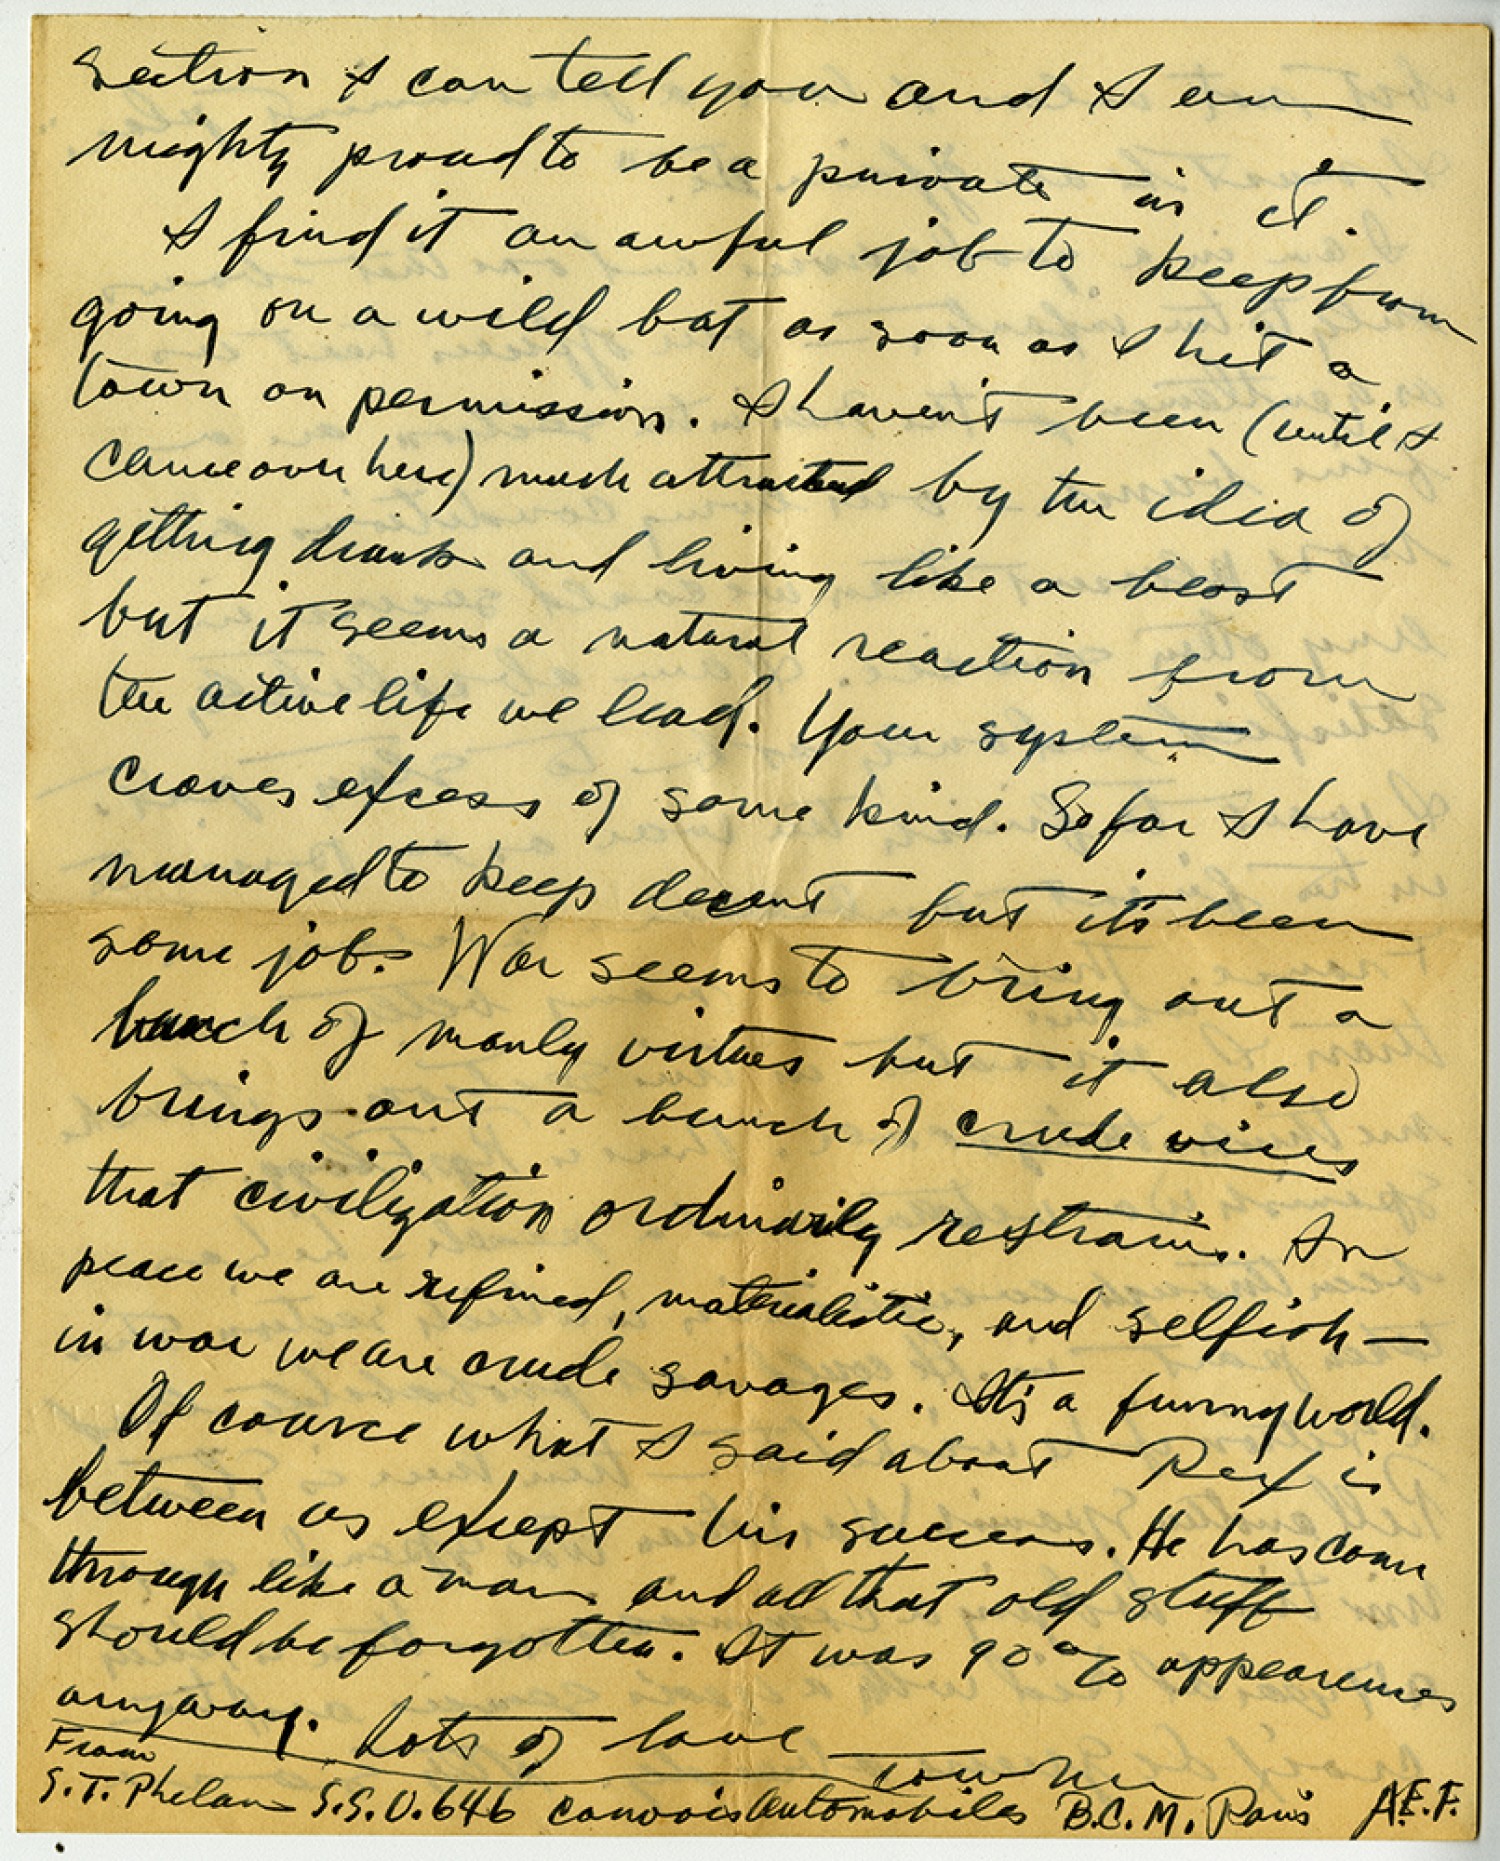 Section I can tell you and I am
mighty proud to be a private in it.
I find it an awful job to keep from
going on a wild bat as soon as I hit a
town on permission. I haven't been (until I
came over here) much attracted by the idea of
getting drunk and living like a beast
but it seems a natural reaction from
the active life we lead. Your system
craves excess of some kind. So far I have
managed to keep decent but it's been
some job. War seems to bring out a
bunch of manly virtues but it also
brings out a bunch of crude vices
that civilization ordinarily restrains. In
peace we are refined, materialistic, and selfish —
in war we are crude savages. It's a funny world.
Of course what I said about Rex is
between us except his success. He has come
through like a man and all that old stuff
should be forgotten. It was 90% appearences
anyway. Lots of love
From
S.T. Phelan S.S.U. 646 Convois Automobiles B.C.M. Paris A.E.F.